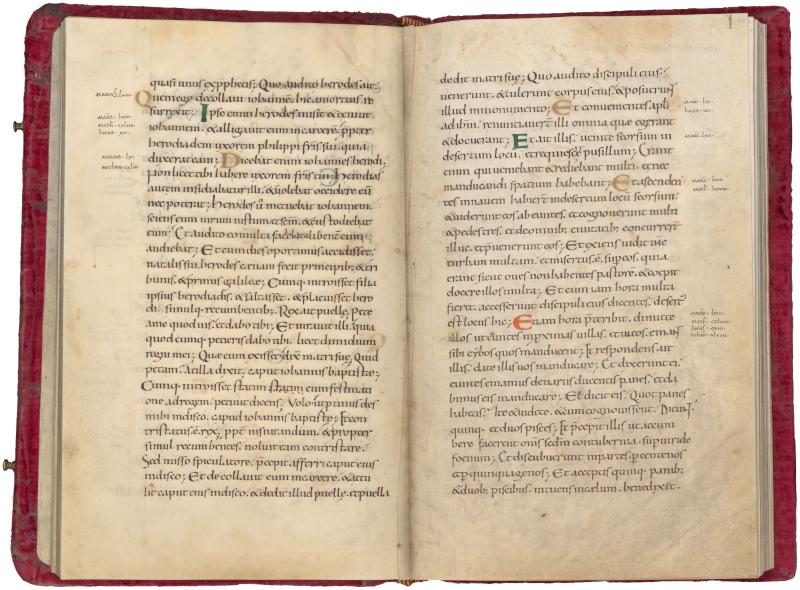 quasi unus ex prophetis; Quo audito herodes ait;
Quem ego decollavi iohannē. hic a mortuis re
surrexit; Ipse enim herodes misit & tenuit
iohannem. & alligavit eum in carcere. ppter
herodiadem uxorem philippi fr̄is sui. quia
duxerat eam; Dicebat enim iohannes herodi;
Non licet tibi habere uxorem fr̄is tui; Herodias
autem insidiabatur illi. & volebat occidere eū
nec poterat; herodes ū metuebat iohannem.
sciens eum virum iustum et scm̄. & custodiebat
eum; Et audito eo multa faciebat & libenter eum
audiebat; Et cum dies oportunus accidisset.
natalis sui herodes cenam fecit principib; & tri
bunis. & primis galileę; Cumq; introisset filia
ipsius herodiadis. & saltasset. & placuisset hero
di. simulq; recumbentib; Rex ait puellę; Pete
a me quod vis. et dabo tibi; Et iuravit illi. quia
quodcumq; petieris dabo tibi. licet dimidium
regni mei; Quę cum exisset dix̄ matri suę; Quid
petam. At illa dixit; caput iohannis baptistę;
Cumq; introisset statim cum festinati
one ad regem. petivit dicens; Volo ut ptinus des
mihi in disco. caput iohannis baptistę; Et con
tristatus ē rex. ppt iusiurandum. & propter
simul recumbentes. noluit eam contristare;
Sed misso spiculatore. pcepit afferri caput eius
in disco; Et decollavit eum in carcere. & attu
lit caput eius in disco. & dedit illud puellę. et puella
dedit matri suę; Quo audito discipuli eius.
venerunt. & tulerunt corpus eius. & posuerunt
illud in monumento; Et convenientes apli
ad ihm̄. renuntiaver̄t illi omnia quę egerant
& docuerant; Et ait illis; venite seorsum in
desertum locū. et requiescite pusillum; Erant
enim qui veniebant & rediebant multi. et nec
manducandi spatium habebant; Et ascenden
tes in navem. habier̄t in desertum locū seorsum.
& viderunt eos abeuntes. et cognoverunt multi
& pedestres. et de omnib; civitatib; concurrer̄t
illuc. et pvenerunt eos; Et exiens vidit ihc̄
turbam multam. et misertus ē. sup eos. quia
erant sicut oves non habentes pastorē. & coepit
docere illos multa; Et cum iam hora multa
fieret. accesserunt discipuli eius dicentes. desert
est locus hic; Et iam hora pteribit. dimitte
illos ut euntes in pximas villas. et vicos. emant
sibi cybos quos manducent; Et respondens ait
illis. date illis vos manducare; Et dixerunt ei.
euntes emamus denariis ducentis panes. et da
bimus eis manducare; Et dicit eis. Quot panes
habetis. Ite & videte. & cum cognovissent. Dicunt.
quinq; et duos pisces; Et pcepit illis ut accum
bere facerent omīs scdm̄ contubernia. sup viride
foenum; Et discubuerunt in partes. p centenos
et p quinquagenos; Et acceptis quinq; panib;
& duob; piscibus. intuens in cęlum. benedixit.